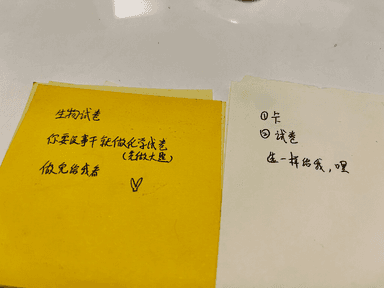 生物试卷
你要没事干就做化学试卷
(先做大题)
做完给我看
①卡
②试卷
选一样给我,嘿